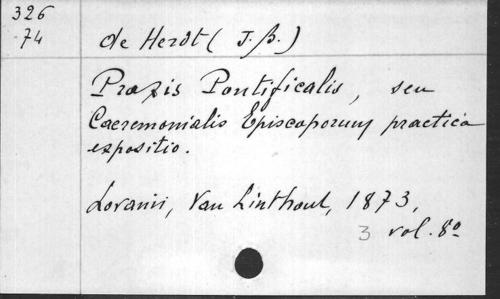 326
74
de Herdt ( J. B. )
Praxis Pontificalis, seu
Caeremonialis Episcoporum practica
expositio.
Lovanii, Van Linthout, 1873,
3 vol. 8º